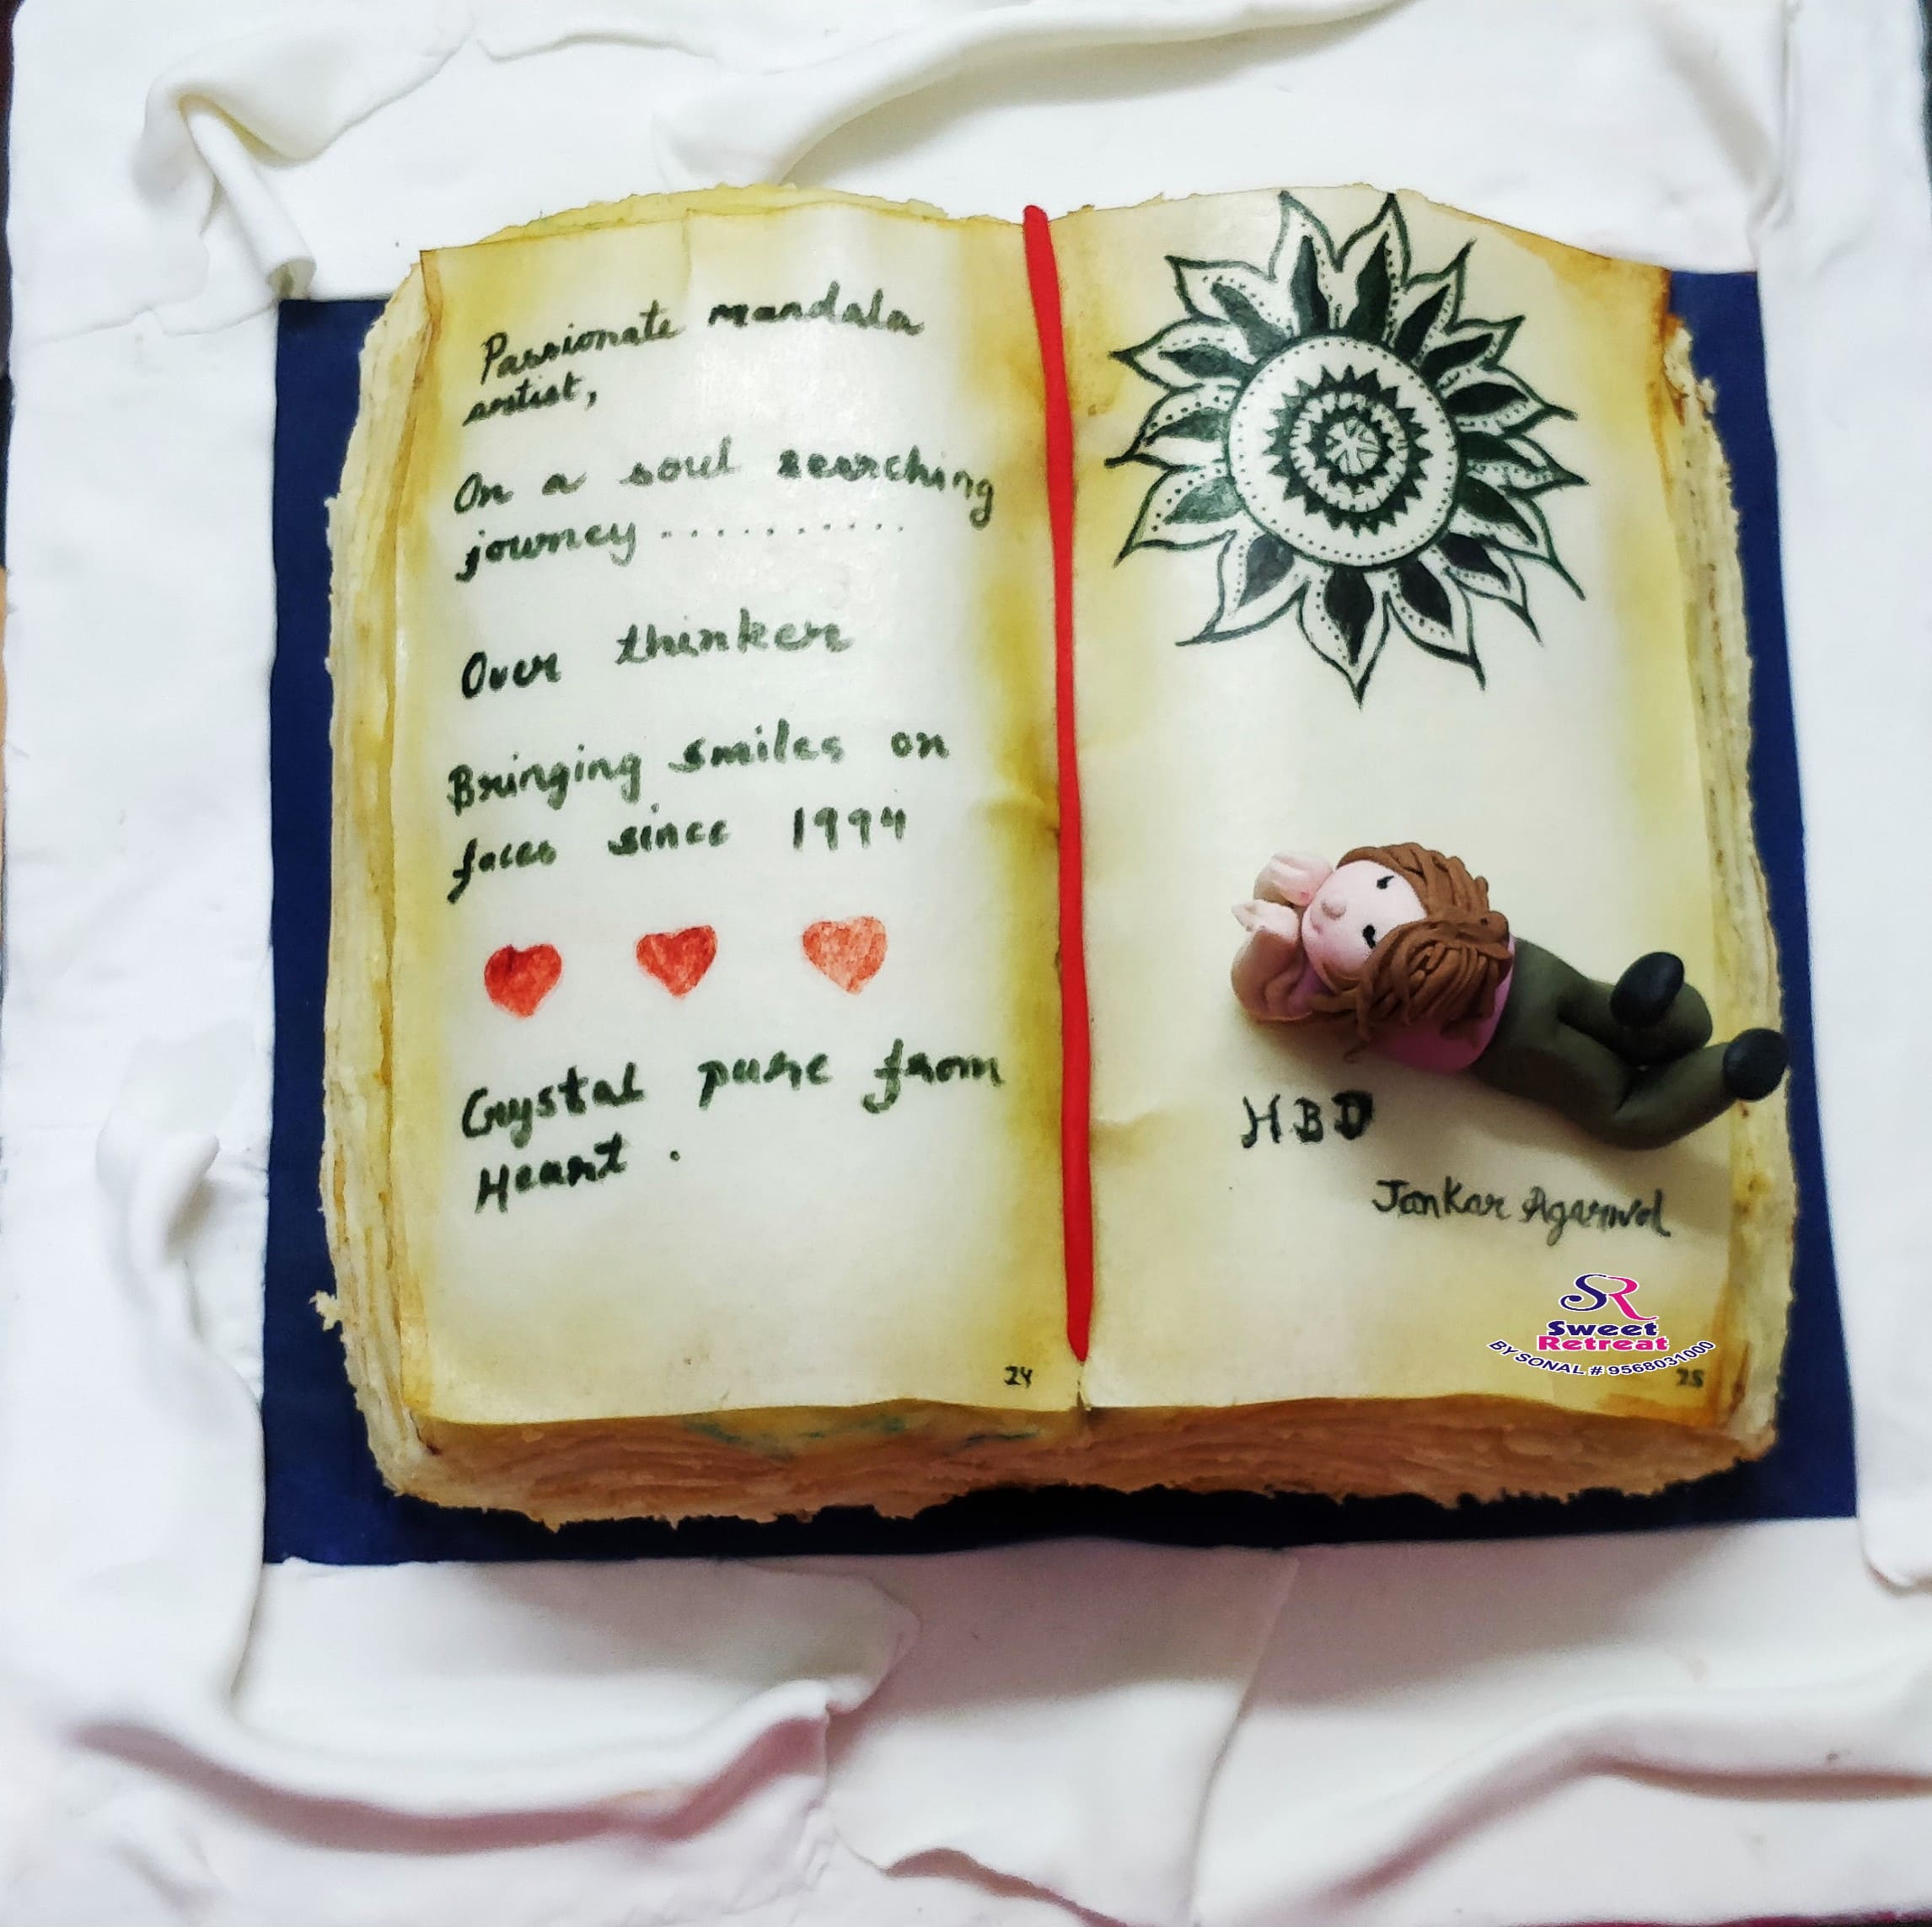 Passionate mandala
artist,
On a soul searching
journey ..........
Over thinker
Bringing smiles on
faces since 1994
Crystal pure from
Heart .
24
HBD
Jankar Agarwal
SR
Sweet
Retreat
BY SONAL # 9568031000
25